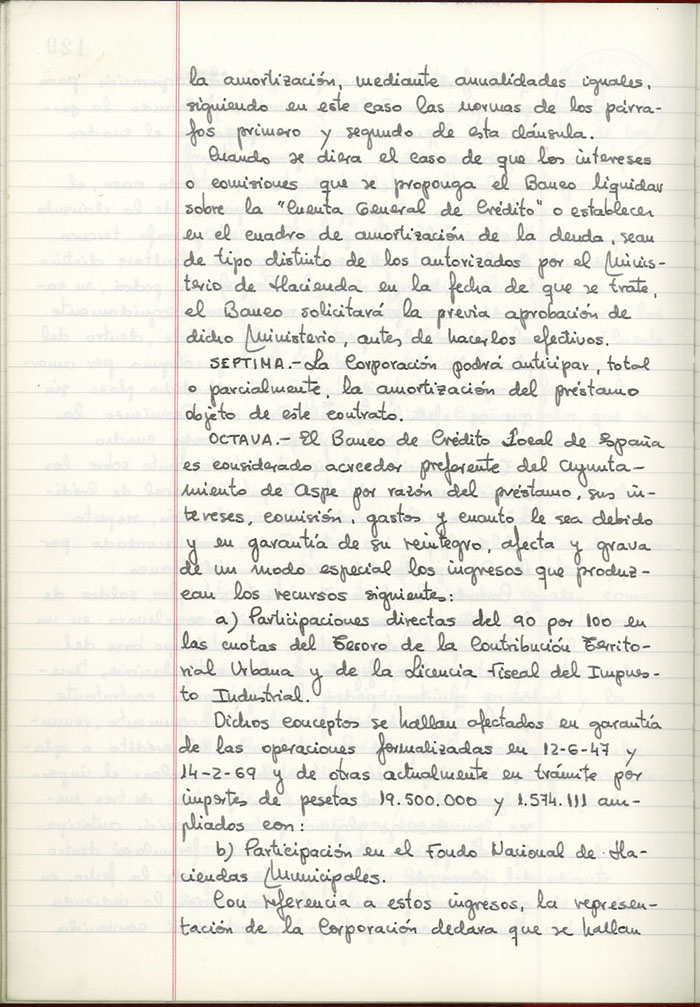 la amortización, mediante anualidades iguales,
siguiendo en este caso las normas de los párra-
fos primero y segundo de esta cláusula.
Cuando se diera el caso de que los intereses
o comisiones que se proponga el Banco liquidar
sobre la "Cuenta General de Crédito" o establecer
en el cuadro de amortización de la deuda, sean
de tipo distinto de los autorizados por el Minis-
terio de Hacienda en la fecha de que se trate,
el Banco solicitará la previa aprobación de
dicho Ministerio, antes de hacerlos efectivos.
SEPTIMA.- La Corporación podrá anticipar, total
o parcialmente, la amortización del préstamo
objeto de este contrato.
OCTAVA.- El Banco de Crédito Local de España
es considerado acreedor preferente del Ayunta-
miento de Aspe por razón del préstamo, sus in-
tereses, comisión, gastos y cuanto le sea debido
y en garantía de su reintegro, afecta y grava
de un modo especial los ingresos que produz-
can los recursos siguientes:
a) Participaciones directas del 90 por 100 en
las cuotas del Tesoro de la Contribución Territo-
rial Urbana y de la Licencia Fiscal del Impues-
to Industrial.
Dichos conceptos se hallan afectados en garantía
de las operaciones formalizadas en 12-6-47 y
14-2-69 y de otras actualmente en trámite por
importes de pesetas 19.500.000 y 1.574.111 am-
pliados con:
b) Participación en el Fondo Nacional de Ha-
ciendas Municipales.
Con referencia a estos ingresos, la represen-
tación de la Corporación declara que se hallan